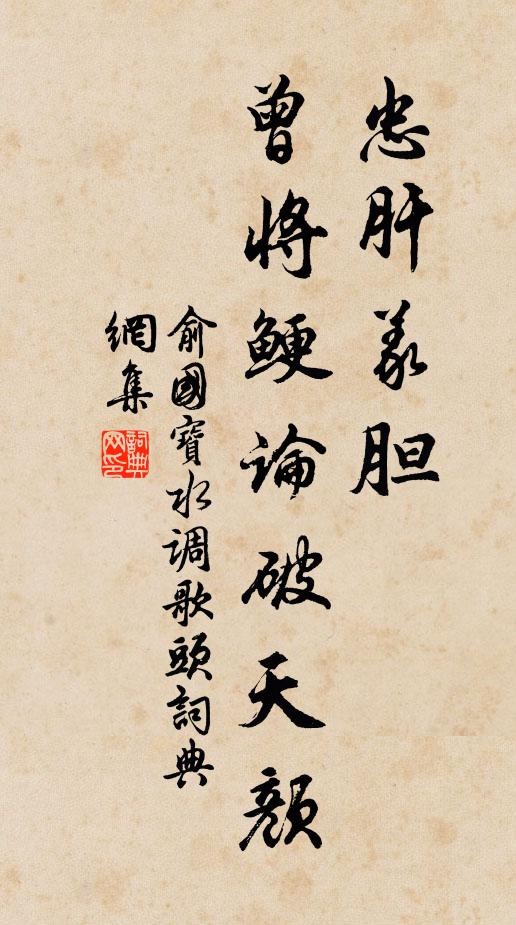 忠肝义胆
曾将鲠论破天颜
俞國寶水调歌頭詞典
網集
詞典
网印